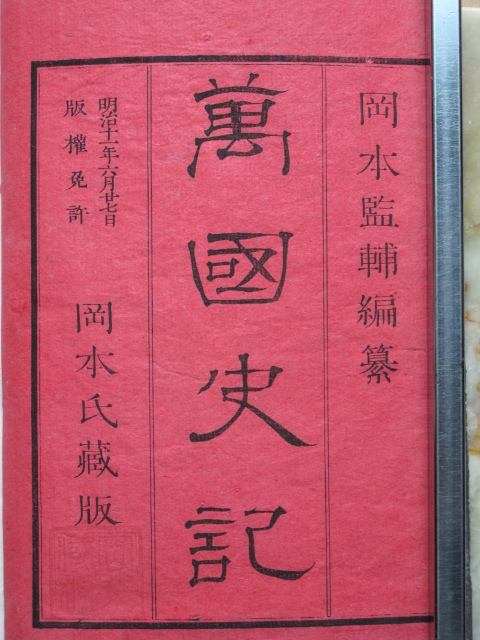 岡本監輔編纂
萬國史記
明治十一年六月廿七日
版權免許
岡本氏藏版